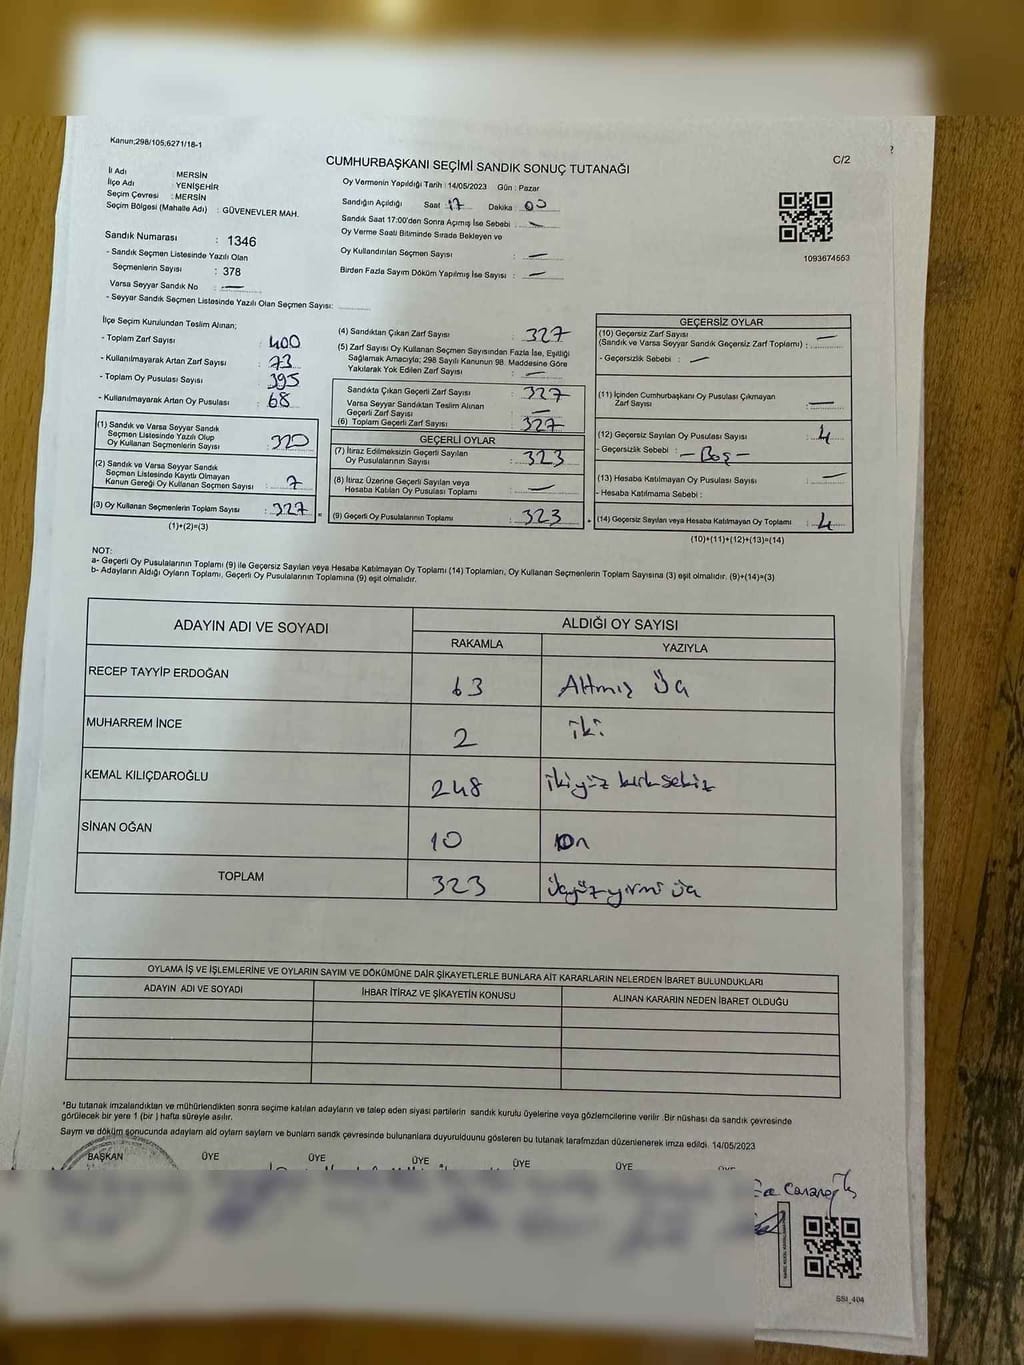 Kanun;298/105,6271/18-1
CUMHURBAŞKANI SEÇİMİ SANDIK SONUÇ TUTANAĞI
C/2
?
İl Adı : MERSİN
İlçe Adı : YENİŞEHİR
Seçim Çevresi : MERSİN
Seçim Bölgesi (Mahalle Adı) : GÜVENEVLER MAH.
Sandık Numarası : 1346
- Sandık Seçmen Listesinde Yazılı Olan
Seçmenlerin Sayısı : 378
Varsa Seyyar Sandık No : —
- Seyyar Sandık Seçmen Listesinde Yazılı Olan Seçmen Sayısı:
Oy Vermenin Yapıldığı Tarih : 14/05/2023 Gün : Pazar
Sandığın Açıldığı Saat : 17 Dakika : 00
Sandık Saat 17:00'den Sonra Açımış İse Sebebi : —
Oy Verme Saati Bitiminde Sırada Bekleyen ve
Oy Kullandırılan Seçmen Sayısı : —
Birden Fazla Sayım Döküm Yapılmış İse Sayısı : —
1093674553
İlçe Seçim Kurulundan Teslim Alınan;
- Toplam Zarf Sayısı : 400
- Kullanılmayarak Artan Zarf Sayısı : 73
- Toplam Oy Pusulası Sayısı : 395
- Kullanılmayarak Artan Oy Pusulası : 68
(1) Sandık ve Varsa Seyyar Sandık
Seçmen Listesinde Yazılı Olup
Oy Kullanan Seçmenlerin Sayısı : 320
(2) Sandık ve Varsa Seyyar Sandık
Seçmen Listesinde Kayıtlı Olmayan
Kanun Gereği Oy Kullanan Seçmen Sayısı : 7
(3) Oy Kullanan Seçmenlerin Toplam Sayısı : 327
(1)+(2)=(3)
(4) Sandıktan Çıkan Zarf Sayısı : 327
(5) Zarf Sayısı Oy Kullanan Seçmen Sayısından Fazla İse, Eşitliği
Sağlamak Amacıyla; 298 Sayılı Kanunun 98. Maddesine Göre
Yakılarak Yok Edilen Zarf Sayısı : —
Sandıkta Çıkan Geçerli Zarf Sayısı : 327
Varsa Seyyar Sandıktan Teslim Alınan
Geçerli Zarf Sayısı : —
(6) Toplam Geçerli Zarf Sayısı : 327
GEÇERLİ OYLAR
(7) İtiraz Edilmeksizin Geçerli Sayılan
Oy Pusulalarının Sayısı : 323
(8) İtiraz Üzerine Geçerli Sayılan veya
Hesaba Katılan Oy Pusulası Toplamı : —
(9) Geçerli Oy Pusulalarının Toplamı : 323
GEÇERSİZ OYLAR
(10) Geçersiz Zarf Sayısı
(Sandık ve Varsa Seyyar Sandık Geçersiz Zarf Toplamı) : —
- Geçersizlik Sebebi : —
(11) İçinden Cumhurbaşkanı Oy Pusulası Çıkmayan
Zarf Sayısı : —
(12) Geçersiz Sayılan Oy Pusulası Sayısı : 4
- Geçersizlik Sebebi : - Boş -
(13) Hesaba Katılmayan Oy Pusulası Sayısı : —
- Hesaba Katılmama Sebebi :
(14) Geçersiz Sayılan veya Hesaba Katılmayan Oy Toplamı : 4
(10)+(11)+(12)+(13)=(14)
NOT:
a- Geçerli Oy Pusulalarının Toplamı (9) ile Geçersiz Sayılan veya Hesaba Katılmayan Oy Toplamı (14) Toplamları, Oy Kullanan Seçmenlerin Toplam Sayısına (3) eşit olmalıdır. (9)+(14)=(3)
b- Adayların Aldığı Oyların Toplamı, Geçerli Oy Pusulalarının Toplamına (9) eşit olmalıdır.
ADAYIN ADI VE SOYADI
ALDIĞI OY SAYISI
RAKAMLA YAZIYLA
RECEP TAYYİP ERDOĞAN 63 Altmış Üç
MUHARREM İNCE 2 İki
KEMAL KILIÇDAROĞLU 248 İkiyüz kırksekiz
SİNAN OĞAN 10 On
TOPLAM 323 Üçyüzyirmi üç
OYLAMA İŞ VE İŞLEMLERİNE VE OYLARIN SAYIM VE DÖKÜMÜNE DAİR ŞİKAYETLERLE BUNLARA AİT KARARLARIN NELERDEN İBARET BULUNDUKLARI
ADAYIN ADI VE SOYADI İHBAR İTİRAZ VE ŞİKAYETİN KONUSU ALINAN KARARIN NEDEN İBARET OLDUĞU
*Bu tutanak imzalandıktan ve mühürlendikten sonra seçime katılan adayların ve talep eden siyasi partilerin sandık kurulu üyelerine veya gözlemcilerine verilir .Bir nüshası da sandık çevresinde
görülecek bir yere 1 (bir ) hafta süreyle asılır.
Sayım ve döküm sonucunda adayların aldı oyların sayları ve bunların sandık çevresinde bulunanlara duyurulduunu gösteren bu tutanak tarafmzdan düzenlenerek imza edildi. 14/05/2023
BAŞKAN ÜYE ÜYE ÜYE ÜYE ÜYE
SSI_404